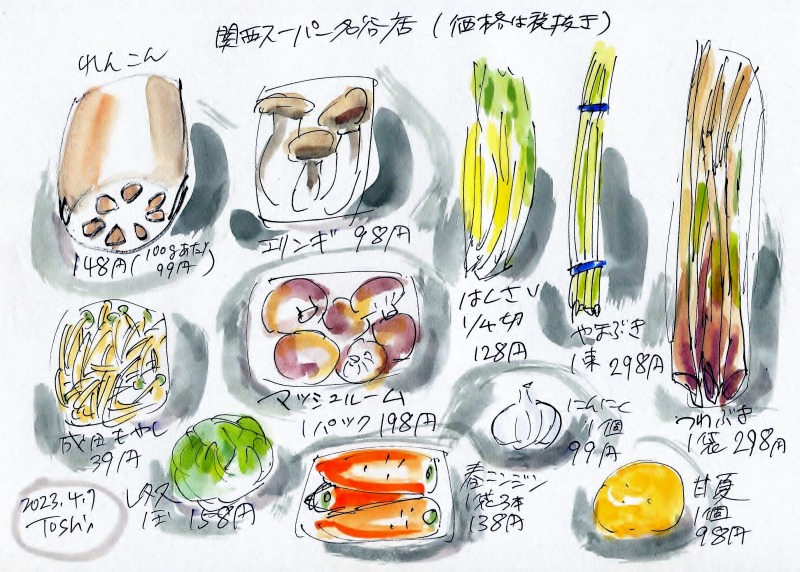 関西スーパー名谷店 (価格は税抜き)
れんこん
148円(100gあたり
99円)
エリンギ 98円
はくさい
1/4切
128円
やまぶき
1束 298円
つわぶき
1袋 298円
成田もやし
39円
マッシュルーム
1パック 198円
にんにく
1個
99円
レタス
1玉 158円
春ニンジン
1袋3本
138円
甘夏
1個
98円
2023.4.7
Toshi